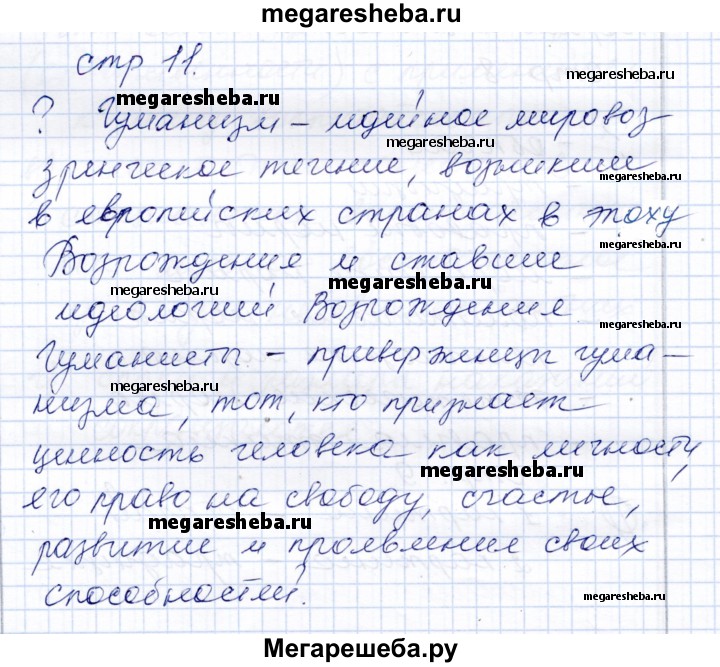 megaresheba.ru
стр 11.
megaresheba.ru
megaresheba.ru
? Гуманизм – идейное мировоз
megaresheba.ru
зренческое течение, возникшее
megaresheba.ru
в европейских странах в эпоху
Возрождения и ставшее
megaresheba.ru
идеологией Возрождения
megaresheba.ru
Гуманисты – приверженцы гума–
megaresheba.ru
низма, тот, кто признает
ценность человека как личности,
megaresheba.ru
его право на свободу, счастье,
megaresheba.ru
развитие и проявление своих
способностей.
megaresheba.ru
Мегарешеба.ру